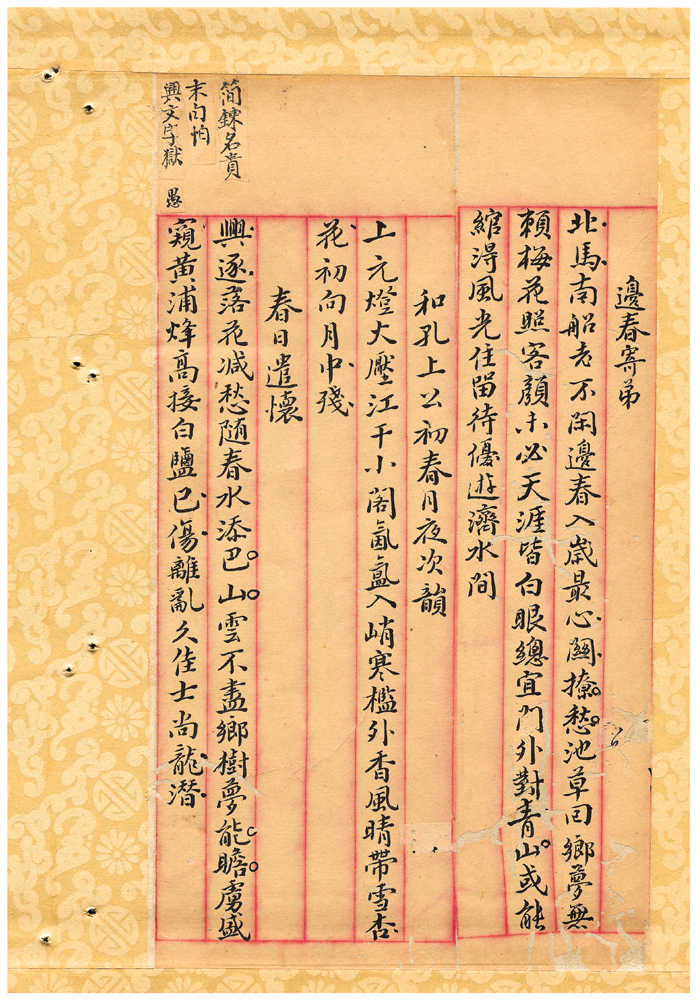 邊春寄弟
北馬南船老不閑邊春入歲最心關撩愁池草回鄉夢無
賴梅花照客顏未必天涯皆白眼總宜門外對青山或能
綰得風光住留待優遊濟水間
和孔上公初春月夜次韻
上元燈火壓江干小閣氤氳入峭寒檻外香風晴帶雪杏
花初向月中殘
春日遣懷
興逐落花減愁隨春水添巴山雲不盡鄉樹夢能瞻虜盛
窺黃浦烽高接白鹽已傷離亂久佳士尚龍潛
簡鍊名貴
末句怕
興文字獄
愚